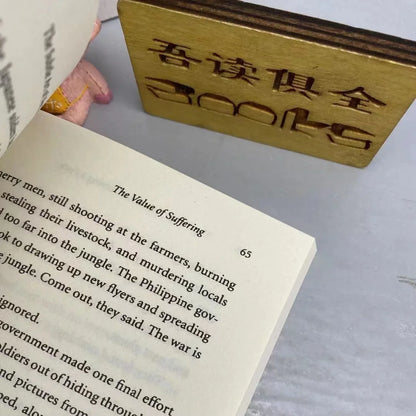 吾读俱全
BOOKS
The Value of Suffering
65
merry men, still shooting at the farmers, burning
stealing their livestock, and murdering locals
too far into the jungle. The Philippine gov-
to drawing up new flyers and spreading
jungle. Come out, they said. The war is
ignored.
government made one final effort
soldiers out of hiding through
and pictures from